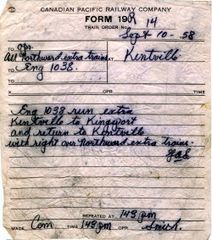 CANADIAN PACIFIC RAILWAY COMPANY
FORM 19R
TRAIN ORDER NO. 14
Sept 10 - 58
TO Opr.
All Northward extra trains Kentville
Eng 1038.
X OPR TIME M.
Eng 1038 run extra
Kentville to Kingsport
and return to Kentville
with right over Northward extra trains.
REPEATED AT 143 pm
MADE Com TIME 143 pm OPR Smith.